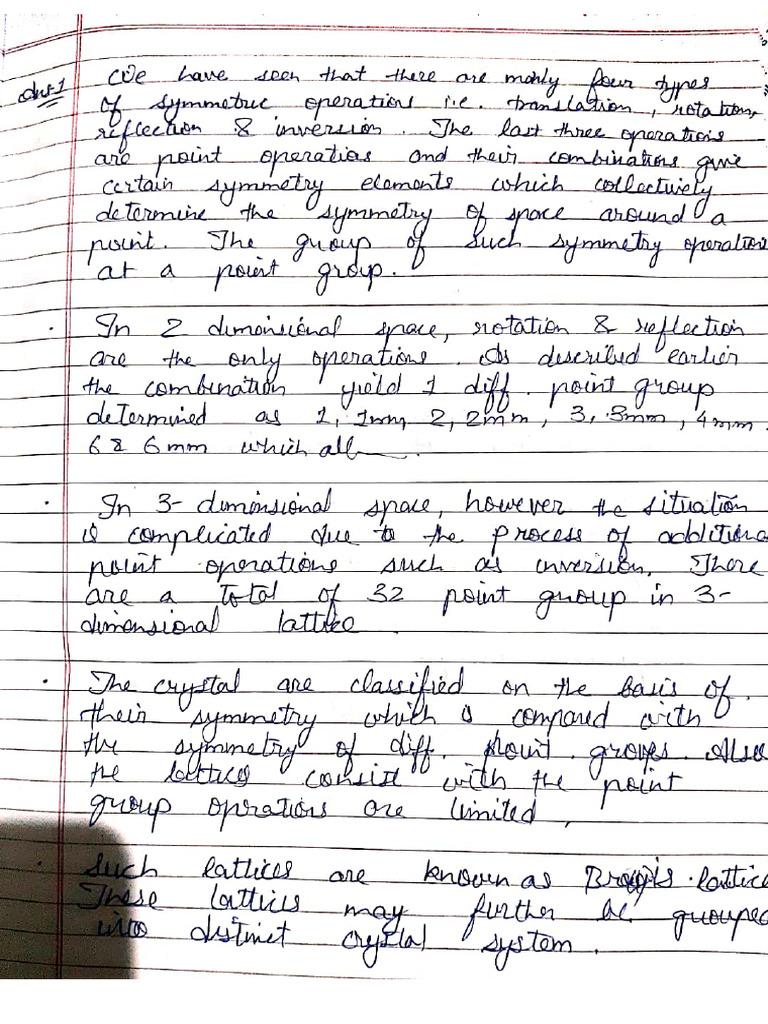 Ans-1 We have seen that there are mainly four types
of symmetric operations i.e. translation, rotation,
reflection & inversion. The last three operations
are point operations and their combinations give
certain symmetry elements which collectively
determine the symmetry of space around a
point. The group of such symmetry operations
at a point group.
. In 2 dimensional space, rotation & reflection
are the only operations. As described earlier
the combination yield 1 diff. point group
determined as 1, 1mm, 2, 2mm, 3, 3mm, 4mm.
6 & 6mm which all
. In 3-dimensional space, however the situation
is complicated due to the process of additiona
point operations such as inversion. There
are a total of 32 point group in 3-
dimensional lattice.
. The crystal are classified on the basis of.
their symmetry which is compared with
the symmetry of diff. point groups. Also
the lattices consist with the point
group operations are limited,
. Such lattices are known as lattice
These lattices may further be grouped
into distinct crystal system.